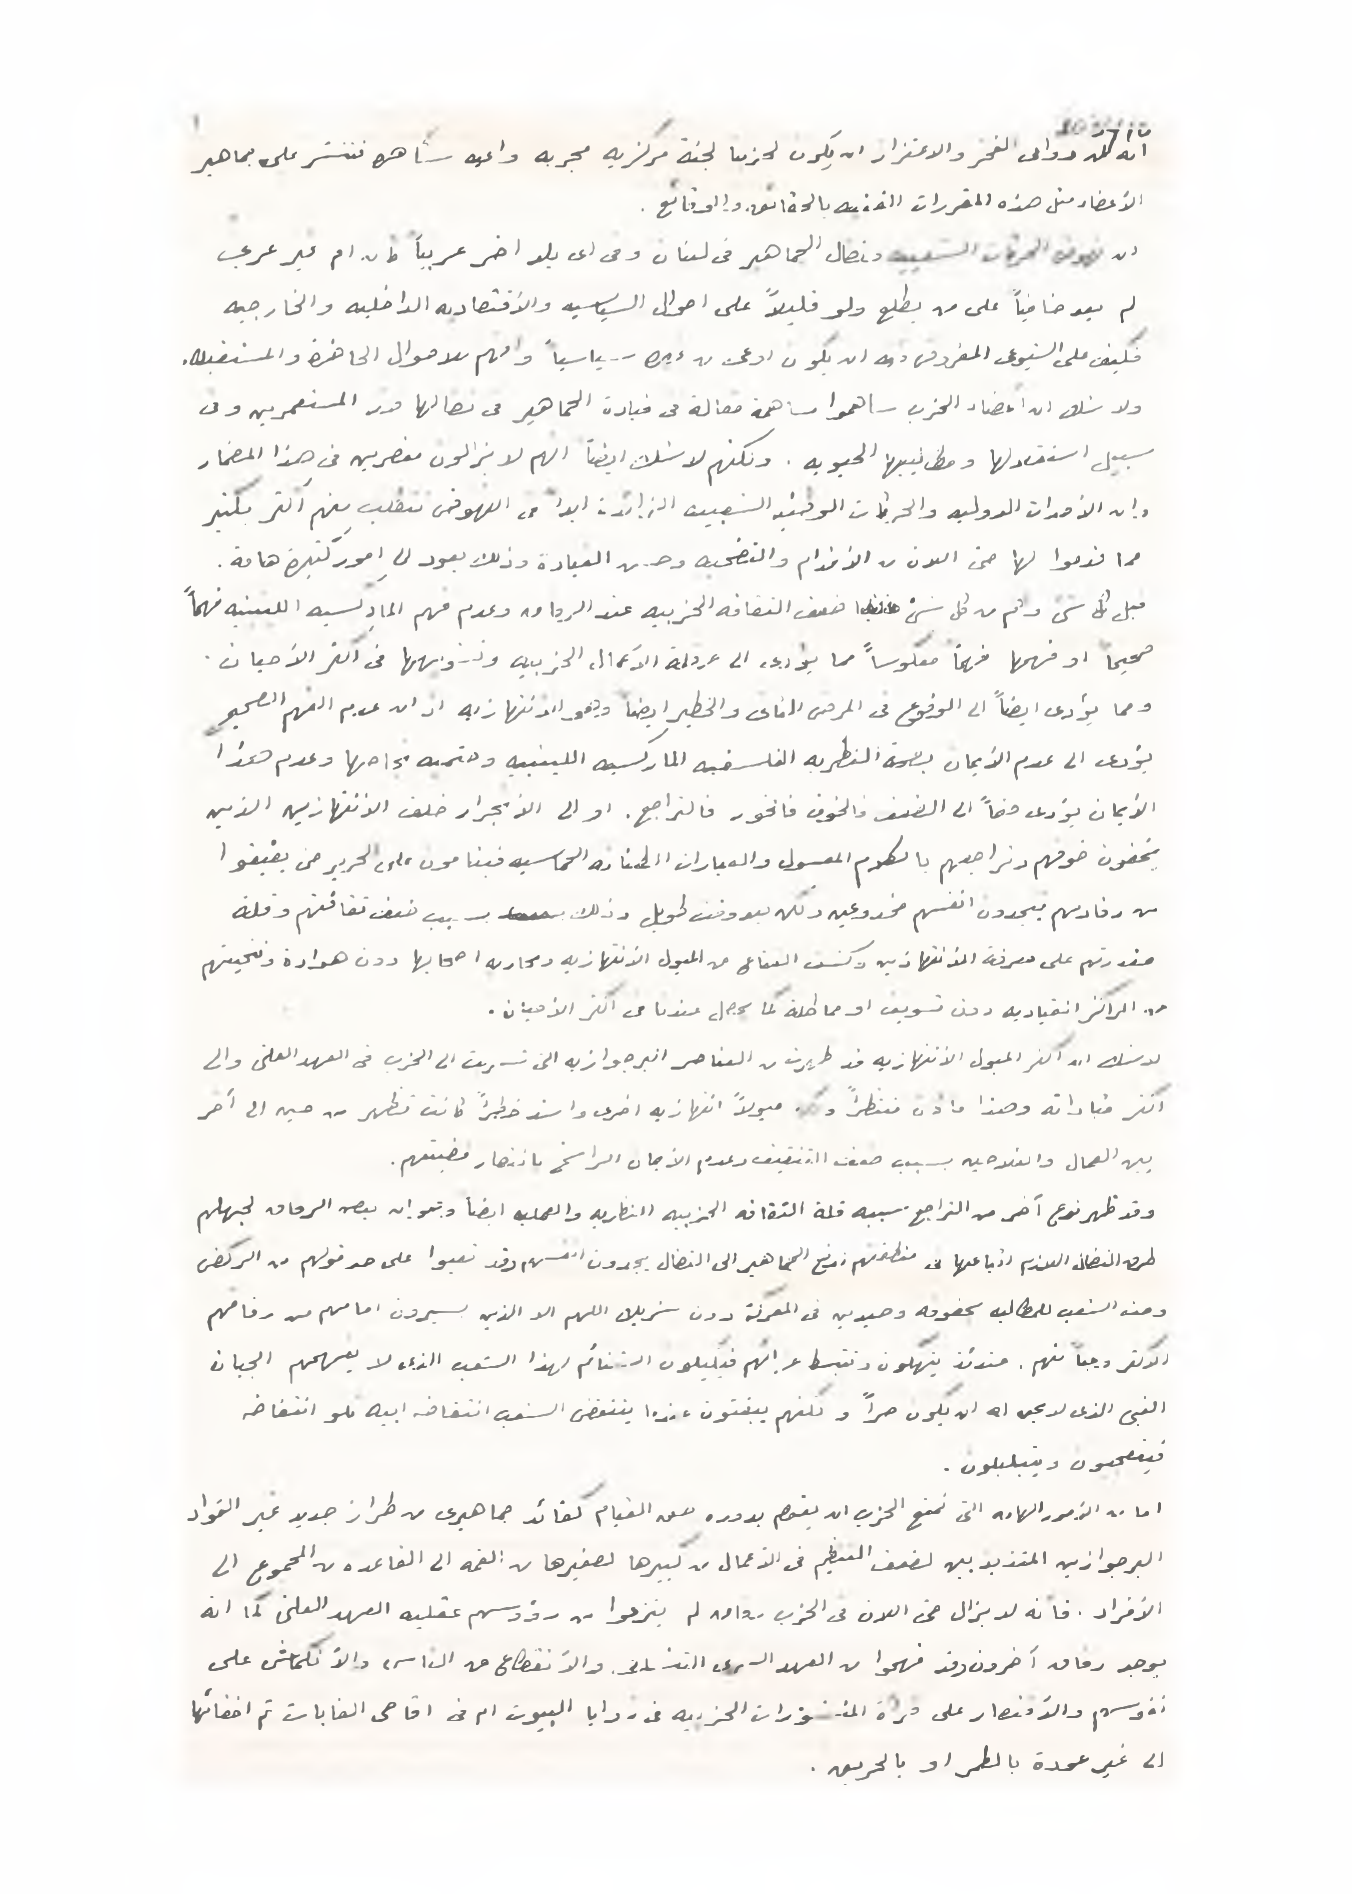 انه لمن دواعي الفخر والاعتزاز ان يكون لحزبنا لجنة مركزيه مجربه واعيه ساهره تنشر على جماهير
الأعضاء مثل هذه المقررات الغنيه بالحقائق والوقائع .
ان نهوض الحركات الشعبيه ونضال الجماهير في لبنان وفي اي بلد اخر عربياً كان ام غير عربي
لم يعد خافياً على من يطلع ولو قليلاً على احوال السياسيه والأقتصاديه الداخليه والخارجيه
فكيف على الشيوعي المفروض فيه ان يكون اوعى من غيره سياسياً وافهم للاحوال الحاضرة والمستقبله .
ولا شك ان أعضاء الحزب ساهموا مساهمة فعالة في قيادة الجماهير في نضالها ضد المستعمرين وفي
سبيل استقلالها ومطاليبها الحيويه . ولكنهم لا شك ايضاً انهم لا يزالون مقصرين في هذا المضمار
وان الأحداث الدوليه والحركات الوطنيه الشعبيه الزائدة ابداً في النهوض تتطلب منهم اكثر بكثير
مما قدموا لها حتى الان من الأقدام والتضحيه وحسن القيادة وذلك يعود الى امور كثيرة هامة .
قبل كل شئ واهم من كل شئ ضعف الثقافه الحزبيه عند الرفاق وعدم فهم الماركسيه اللينينيه فهماً
صحيحاً او فهمها فهماً معكوساً مما يؤدي الى عرقلة الأعمال الحزبيه وتشويهها في اكثر الأحيان .
ومما يؤدي ايضاً الى الوقوع في المرض الثاني والخطير ايضاً وهو الانتهازيه اذ ان عدم الفهم الصحيح
يؤدي الى عدم الأيمان بصحة النظريه الفلسفيه الماركسيه اللينينيه وحتميه نجاحها وعدم هذا
الأيمان يؤدي حتماً الى الضعف فالخوف فالخور فالتراجع . او الى الأنجرار خلف الأنتهازيين الذين
يخفون خوفهم وتراجعهم بالكلام المعسول والعبارات الطنانه الحماسيه فينامون على الحرير حتى يفيقوا
من رقادهم فيجدون انفسهم مخدوعين ولكن بعد وقت طويل وذلك بسبب ضعف ثقافتهم وقلة
مقدرتهم على معرفة الأنتهازيين وكشف القناع عن الميول الأنتهازيه ومحاربه اصحابها دون هوادة وتنحيتهم
عن المراكز القياديه دون تسويف او مماطلة كما يحصل عندنا في اكثر الأحيان .
لا شك ان اكثر الميول الأنتهازيه قد ظهرت من العناصر البرجوازيه التي تسربت الى الحزب في العهد العلني والى
اكثر قياداته وهذا ما كان منتظراً ولكن ميولاً انتهازيه اخرى واشد خطراً كانت تظهر من حين الى آخر
بين العمال والفلاحين بسبب ضعف التثقيف وعدم الأيمان الراسخ بانتصار قضيتهم .
وقد ظهر نوع آخر من التراجع سببه قلة الثقافه الحزبيه النظريه والعمليه ايضاً وهو ان بعض الرفاق لجهلهم
طرق النضال اللازم اتباعها في منطقتهم لدفع الجماهير الى النضال يجدون انفسهم وقد تعبوا على حد قولهم من الركض
وحث الشعب للمطالبه بحقوقه وحيدين في المعركة دون شريك اللهم الا الذين يسيرون امامهم من رفاقهم
الاكثر وعياً منهم . عندئذ ينهكون وتثبط عزائمهم فيكيلون الشتائم لهذا الشعب الذي لا يفهمهم الجبان
الغبي الذي لا يحق له ان يكون حراً ولكنهم يبغتون عندما ينتفض الشعب انتفاضه ابيه تلو انتفاضه
فيتعجبون ويتبلبلون .
اما من الأمور الهامه التي تمنع الحزب ان يقوم بدوره حق القيام كقائد جماهيري من طراز جديد غير القواد
البرجوازيين المتذبذبين لضعف التنظيم في الأعمال من كبيرها لصغيرها من القمه الى القاعده من المجموع الى
الأفراد . فانه لا يزال حتى الان في الحزب رفاق لم ينزعوا من رؤوسهم عقليه العهد العلني كما انه
يوجد رفاق آخرون وقد فهموا من العهد السري والأنقطاع عن الناس والأنكماش على
نفوسهم والأقتصار على قرأة المنشورات الحزبيه في زوايا البيوت ام في اقاصي الغابات ثم اخفائها
الى غير عودة بالطمر او بالحريق .